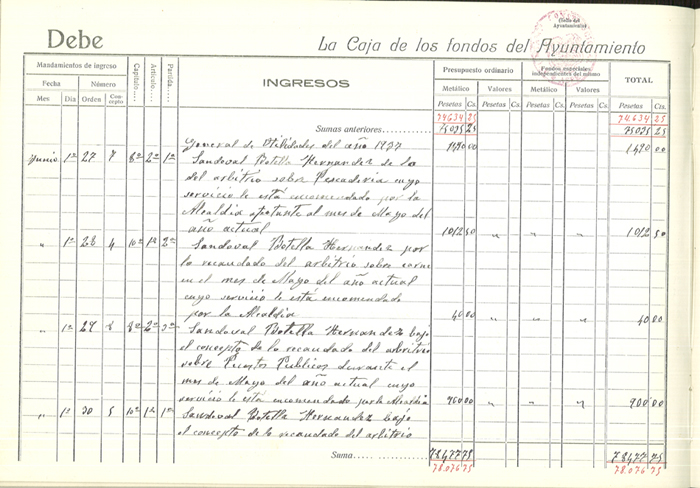 Debe
La Caja de los fondos del Ayuntamiento
Mandamientos de ingreso
Fecha Número
Mes Día Orden Concepto
Capítulo Artículo Partida
INGRESOS
Presupuesto ordinario
Metálico Valores
Pesetas Cs. Pesetas Cs.
Fondos especiales independientes del mismo
Metálico Valores
Pesetas Cs. Pesetas Cs.
TOTAL
Pesetas Cts.
74634 25 74.634 25
Sumas anteriores 75035 25 75035 25
General de Utilidades del año 1937 1490 00 1490 00
Junio 1º 27 7 8º 2º 1º Sandoval Botella Hernandez
del arbitrio sobre Pescaderia cuyo
servicio le está encomendado por la
Alcaldia al mes de Mayo del
año actual 1012 50 " " " 1012 50
" 1º 28 4 10º 1º 2º Sandoval Botella Hernandez por
lo recaudado del arbitrio sobre carne
en el mes de Mayo del año actual
cuyo servicio le está encomendado
por la Alcaldia 40 00 " " " 40 00
" 1º 29 8º 2º Sandoval Botella Hernandez bajo
el concepto de lo recaudado del arbitrio
sobre Puestos Publicos durante el
mes de Mayo del año actual cuyo
servicio le está encomendado por la Alcaldia 900 00 " " " 900 00
" 1º 30 5 10º 1º 1º Sandoval Botella Hernandez bajo
el concepto de lo recaudado del arbitrio
Suma 78477 75 78477 75
78.076 75 78.076 75